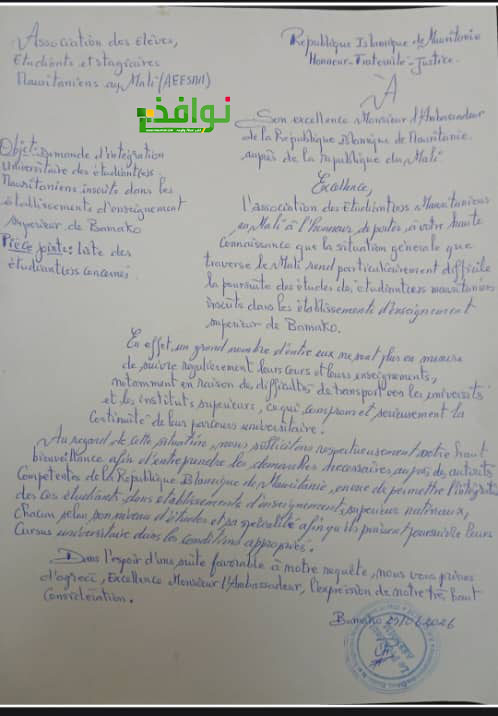 Association des Elèves,
Etudiants et stagiaires
Mauritaniens au Mali (AEESMM)
Republique Islamique de Mauritanie
Honneur-Fraternité-Justice.
À
Son excellence Monsieur l'Ambassadeur
de la République Islamique de Mauritanie
auprès de la republique du Mali
نوافذ
Objet: Demande d'intégration
Universitaire des étudiant(e)s
Mauritaniens inscrits dans les
établissements d'enseignement
superieur de Bamako
Pièce jointe: liste des
étudiant(e)s concernés
Excellence,
l'association des Etudiant(e)s Mauritaniens
au Mali à l'honneur de porter à votre haute
connaissance que la situation générale que
traverse le Mali rend particulièrement difficile
la poursuite des études des étudiant(e)s mauritaniens
inscrits dans les établissements d'enseignement
superieur de Bamako.
En effet, un grand nombre d'entre eux ne sont plus en mesure
de suivre regulièrement leurs cours et leurs enseignements,
notamment en raison de difficultés de transport vers les universités
et les instituts superieurs, ce qui compromet serieusement la
continuité de leur parcours universitaire.
Au regard de cette situation, nous sollicitons respectueusement votre haut
bienveillance afin d'entreprendre les demarches nécessaires auprès des autorités
Compétentes de la Republique Islamique de Mauritanie, en vue de permettre l'intégration
des ces étudiants dans établissements d'enseignement superieur nationaux,
chacun selon son niveau d'études et sa spécialité afin qu'ils puissent poursuivre leurs
Cursus universitaire dans les conditions appropriés.
Dans l'espoir d'une suite favorable à notre requête, nous vous prions
d'agréer, Excellence Monsieur l'Ambassadeur, l'expression de notre très haut
Considération.
Bamako 2026